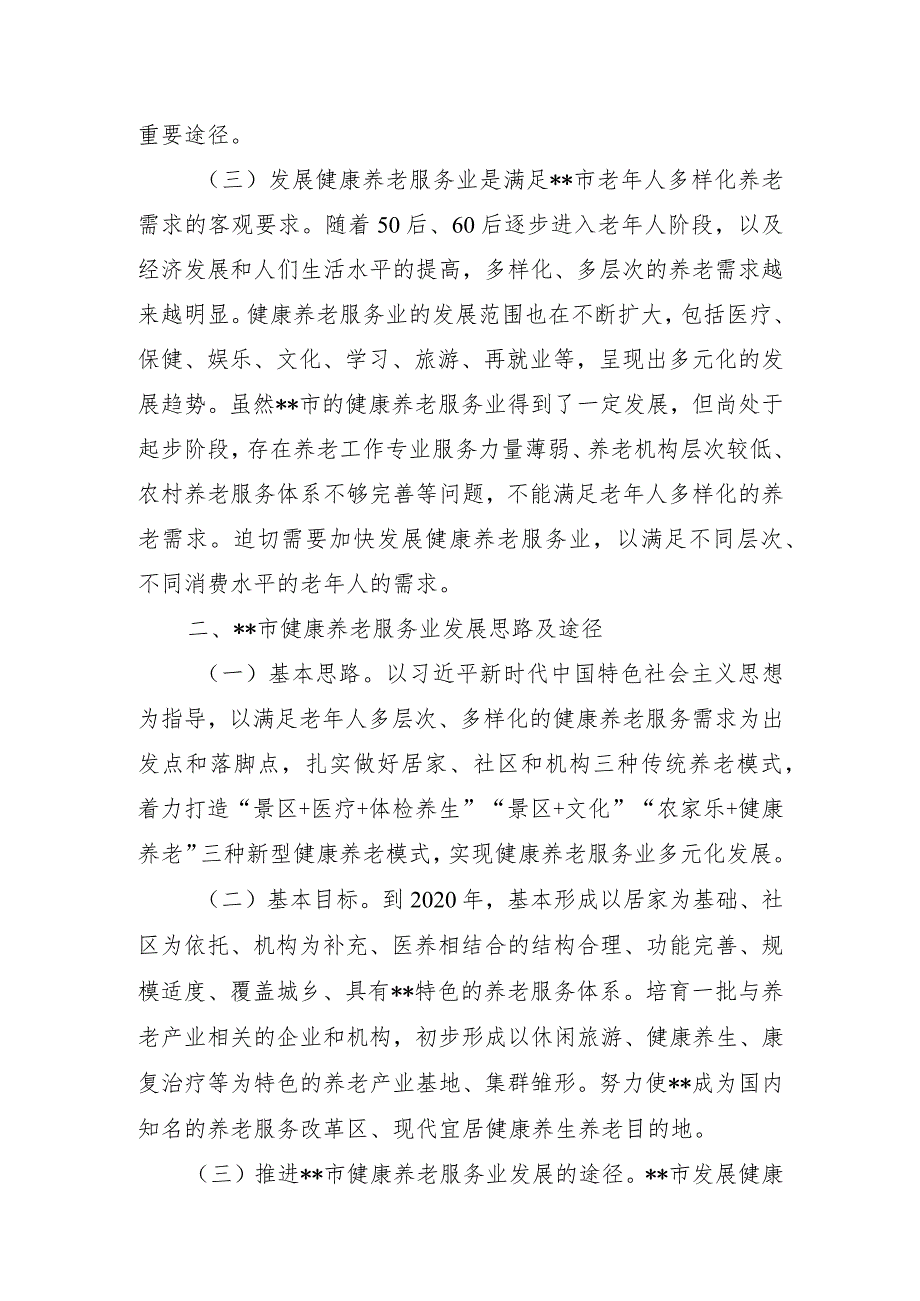 重要途径。
（三）发展健康养老服务业是满足**市老年人多样化养老
需求的客观要求。随着50后、60后逐步进入老年人阶段，以及
经济发展和人们生活水平的提高，多样化、多层次的养老需求越
来越明显。健康养老服务业的发展范围也在不断扩大，包括医疗、
保健、娱乐、文化、学习、旅游、再就业等，呈现出多元化的发
展趋势。虽然**市的健康养老服务业得到了一定发展，但尚处于
起步阶段，存在养老工作专业服务力量薄弱、养老机构层次较低、
农村养老服务体系不够完善等问题，不能满足老年人多样化的养
老需求。迫切需要加快发展健康养老服务业，以满足不同层次、
不同消费水平的老年人的需求。
二、**市健康养老服务业发展思路及途径
（一）基本思路。以习近平新时代中国特色社会主义思想
为指导，以满足老年人多层次、多样化的健康养老服务需求为出
发点和落脚点，扎实做好居家、社区和机构三种传统养老模式，
着力打造“景区+医疗+体检养生”“景区+文化”“农家乐+健康
养老”三种新型健康养老模式，实现健康养老服务业多元化发展。
（二）基本目标。到2020年，基本形成以居家为基础、社
区为依托、机构为补充、医养相结合的结构合理、功能完善、规
模适度、覆盖城乡、具有**特色的养老服务体系。培育一批与养
老产业相关的企业和机构，初步形成以休闲旅游、健康养生、康
复治疗等为特色的养老产业基地、集群雏形。努力使**成为国内
知名的养老服务改革区、现代宜居健康养生养老目的地。
（三）推进**市健康养老服务业发展的途径。**市发展健康